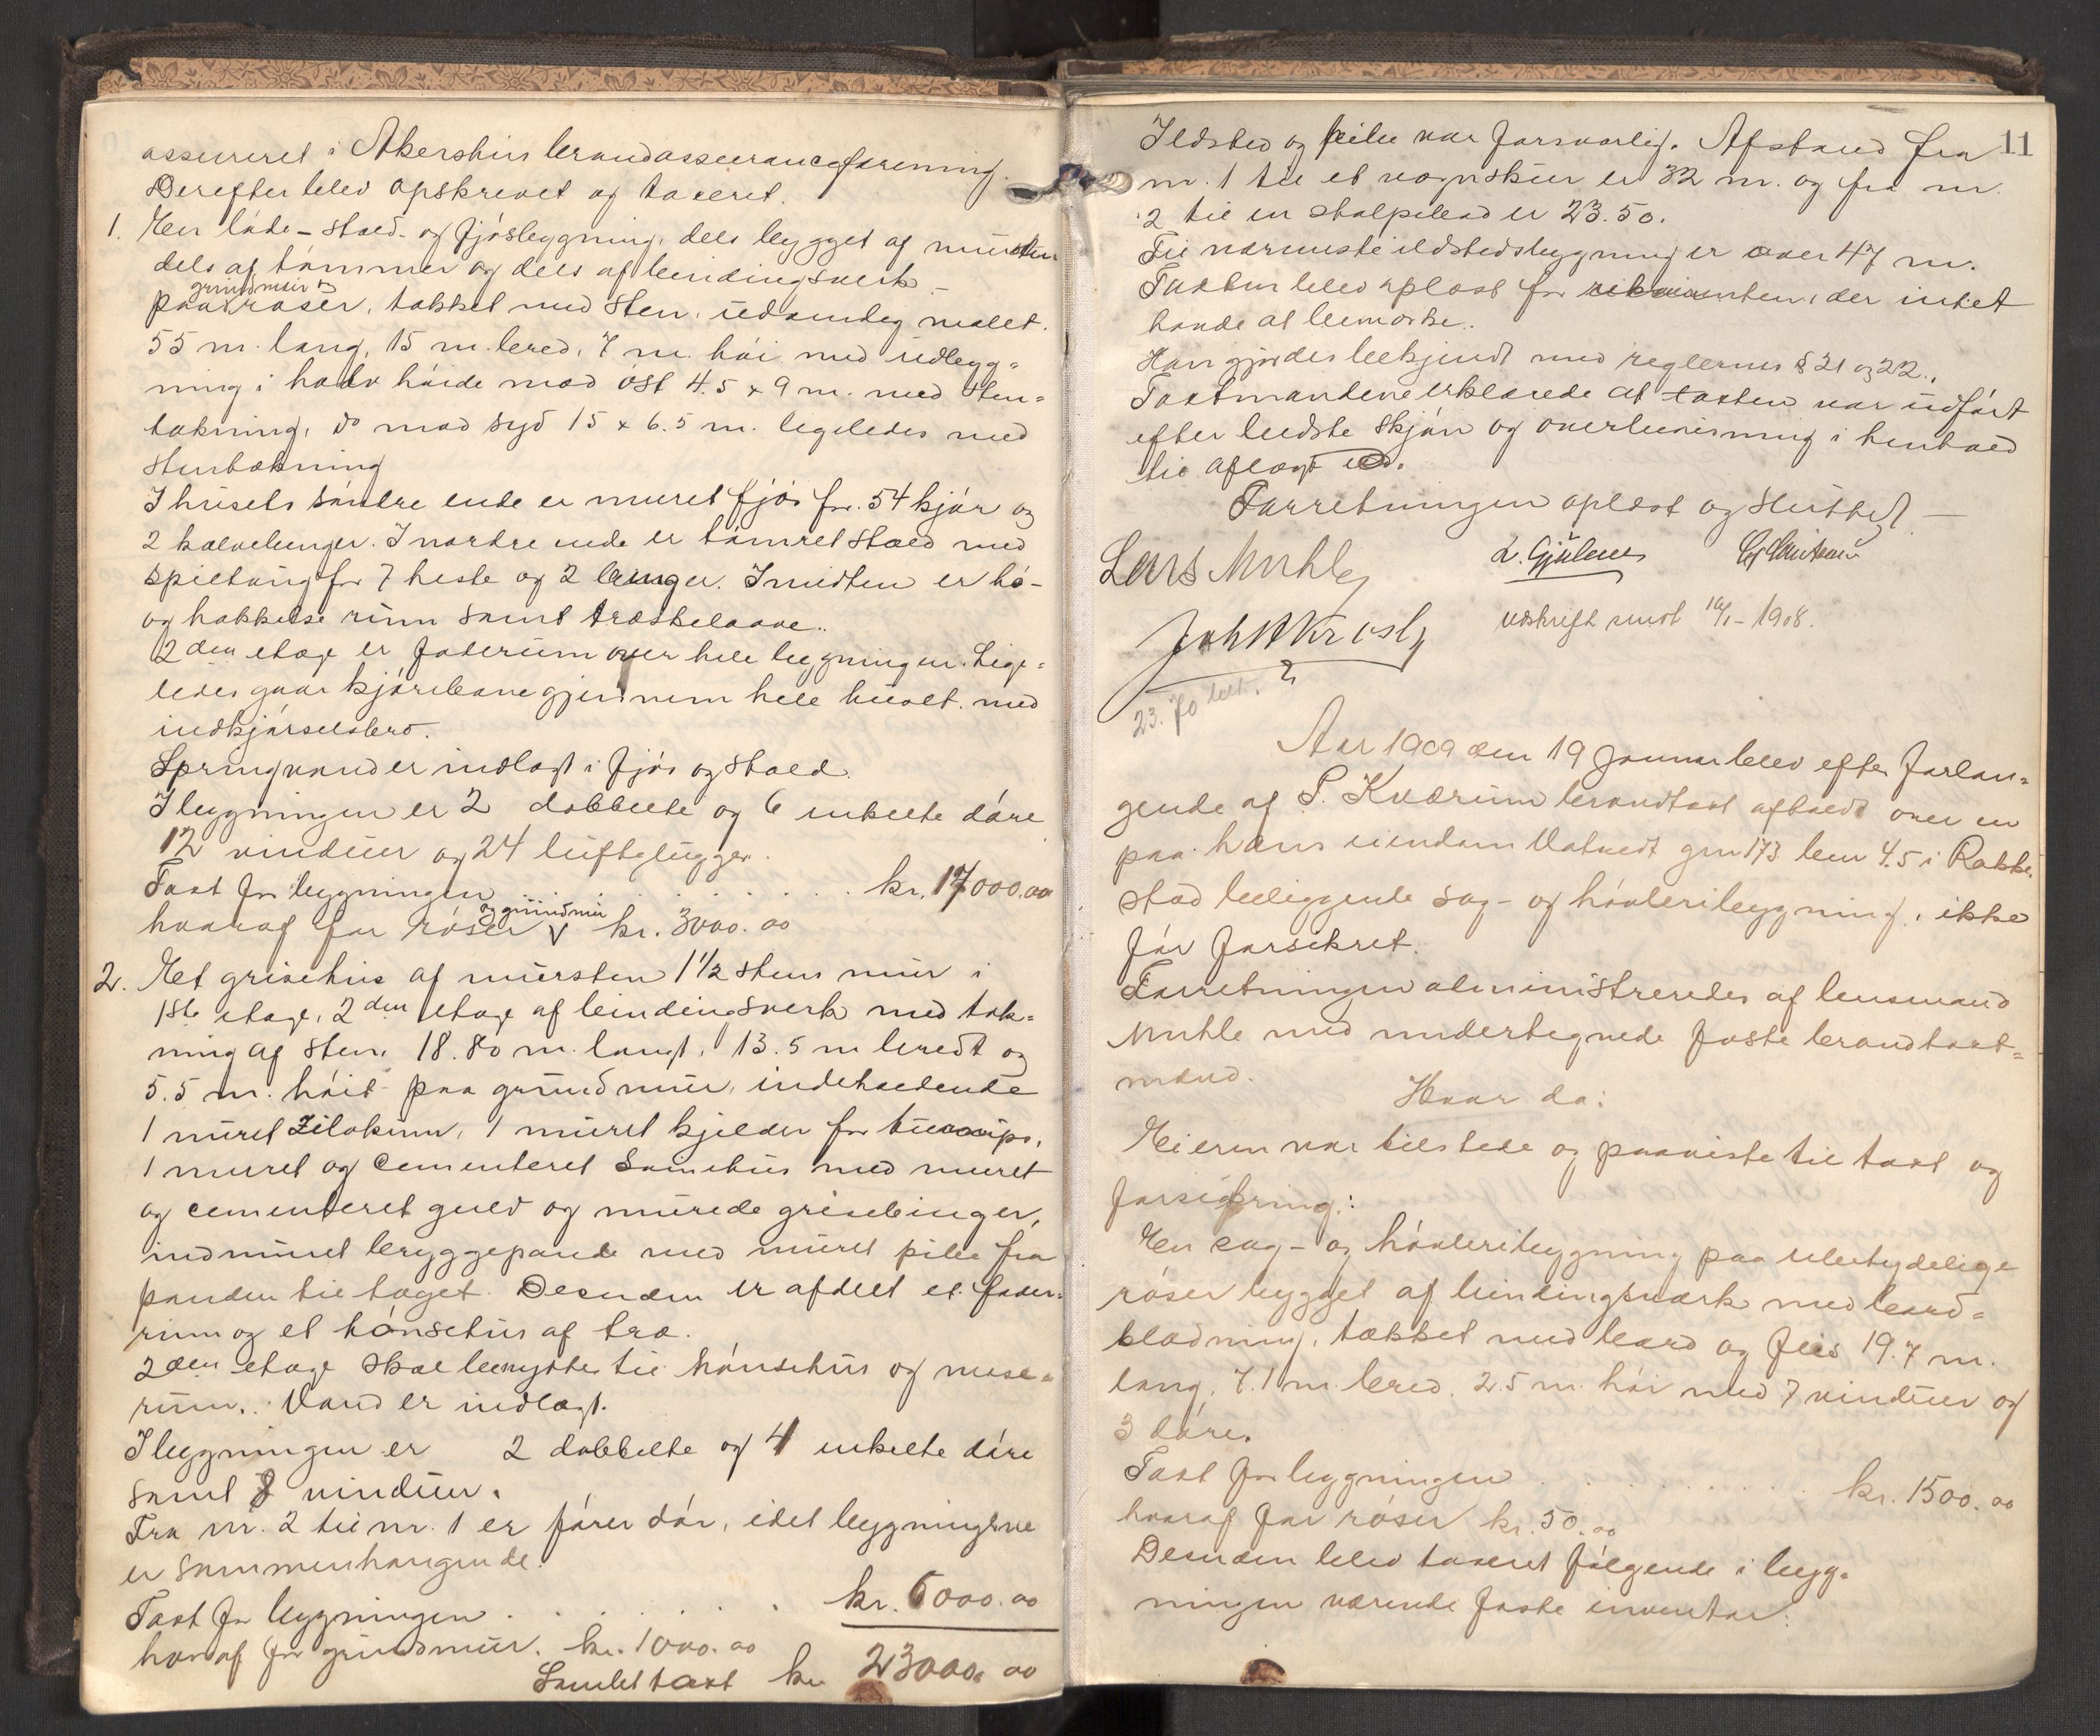 assureret i Akershus brandassuranceforening.
Derefter blev opskrevet og taxeret.
1. En låde- stald- og fjøsbygning, dels bygget af mursten
dels af tømmer og dels af bindingsverk
grundmur og
paa røser, tækket med sten, udvendig malet.
55 m. lang, 15 m. bred, 7 m. høi med udbygg=
ning i halv høide mod øst 4.5 x 9 m. med sten=
tækning, do mod syd 15 x 6.5 m. ligeledes med
stentækning
I husets søndre ende er muret fjøs for 54 kjør og
2 kalvebinger. I nordre ende er tømret stald med
spiltaug for 7 heste og 2 binger. I midten er hø-
og hakkelse rum samt træskelaave.
2den etage er foderum over hele bygningen. Lige=
ledes gaar kjørebane gjennem hele huset med
indkjørselsbro.
Springvand er indlagt i fjøs og stald.
I bygningen er 2 dobbelte og 6 enkelte døre
12 vinduer og 24 luftglugger.
Taxt for bygningen . . . . . . . kr. 17000.00
og grundmur
hvoraf for røser kr. 3000.00
2. Et grisehus af mursten 1 1/2 stens mur i
1ste etage, 2den etage af bindingsverk med tæk=
ning af sten, 18.80 m. langt, 13.5 m bredt og
5.5 m. høit paa grundmur, indeholdende
1 muret Silokum, 1 muret kjelder for turnips,
1 muret og cementeret med muret
og cementeret gulv og murede grisebinger,
indmuret bryggepande med muret pibe fra
panden til taget. Desuden er afdelt et foder=
rum og et hønsehus af træ.
2den etage skal benyttes til hønsehus og mase=
rum. Vand er indlagt.
I bygningen er 2 dobbelte og 4 enkelte døre
samt 8 vinduer.
Fra nr. 2 til nr. 1 er fører dør, idet bygningerne
er sammenhængende.
Taxt for bygningen . . . . . . kr. 6000.00
hvoraf for grundmur. kr. 1000.00
Samlet taxt kr. 23000.00
11
Ildsted og pibe var forsvarlig. Afstand fra
nr. 1 til et vognskur er 32 m. og fra nr.
2 til en stolpebod er 23.50.
Til nærmeste ildstedsbygning er over 47 m.
Taxten blev oplæst for rekvirenten, der intet
havde at bemærke.
Han gjordes bekjendt med reglernes § 21 og 22.
Taxtmændene erklærede at taxten var udført
efter bedste skjøn og overbevisning i henhold
til aflagt ed.
Forretningen oplæst og sluttet —
Lars Muhle
L. Gjølme
Joh A Krosby
Udskrift sendt 16/1-1908.
23.70 belt.
Aar 1909 den 19 Januar blev efter forlan=
gende af S. Kværum brandtaxt afholdt over en
paa hans eiendom Vatvedt gnr 173 bnr 4.5 i Rakke=
stad beliggende sag- og høvleribygning, ikke
før forsikret.
Forretningen administreredes af lensmand
Muhle med undertegnede faste brandtaxt=
mænd.
Hvor da:
Eieren var tilstede og paaviste til taxt og
forsikring:
En sag- og høvleribygning paa ubetydelige
røser bygget af bindingsværk med bord=
klædning, tækket med bord og flis 19.7 m.
lang, 7.1 m. bred, 2.5 m. høi med 7 vinduer og
3 døre.
Taxt for bygningen . . . . . . . kr. 1500.00
hvoraf for røser kr. 50.00
Desuden blev taxeret følgende i byg=
ningen værende faste inventar: